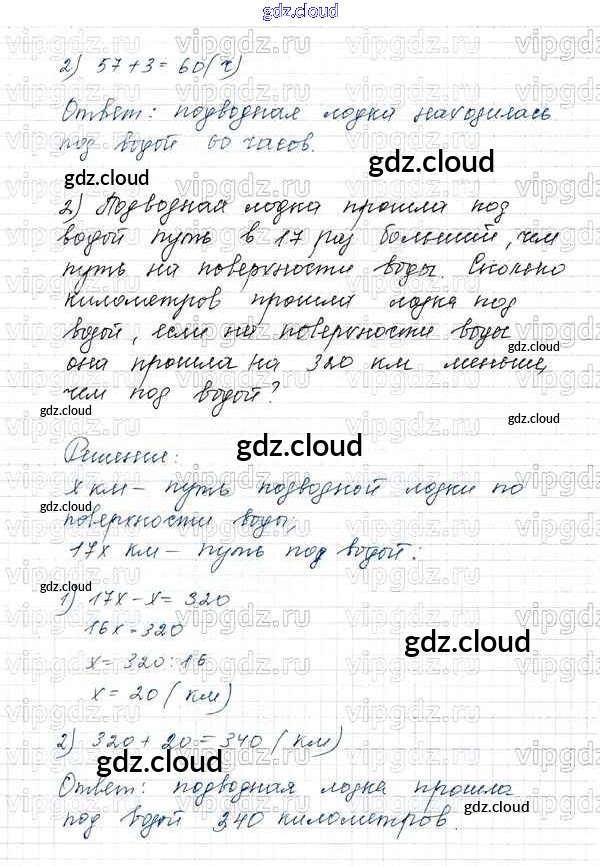 gdz.cloud
2) 57+3=60(ч)
Ответ: подводная лодка находилась
под водой 60 часов.
gdz.cloud
gdz.cloud
2) Подводная лодка прошла под
водой путь в 17 раз больший, чем
путь на поверхности воды. Сколько
километров прошла лодка под
водой, если на поверхности воды
gdz.cloud
она прошла на 320 км меньше,
чем под водой?
gdz.cloud
gdz.cloud
gdz.cloud
Решение:
х км – путь подводной лодки по
gdz.cloud
поверхности воды;
17х км – путь под водой:
gdz.cloud
1) 17х-х=320
16х=320
gdz.cloud
х=320:16
gdz.cloud
х=20(км)
2) 320+20=340(км)
gdz.cloud
Ответ: подводная лодка прошла
gdz.cloud
под водой 340 километров.
gdz.cloud
vipgdz.ru